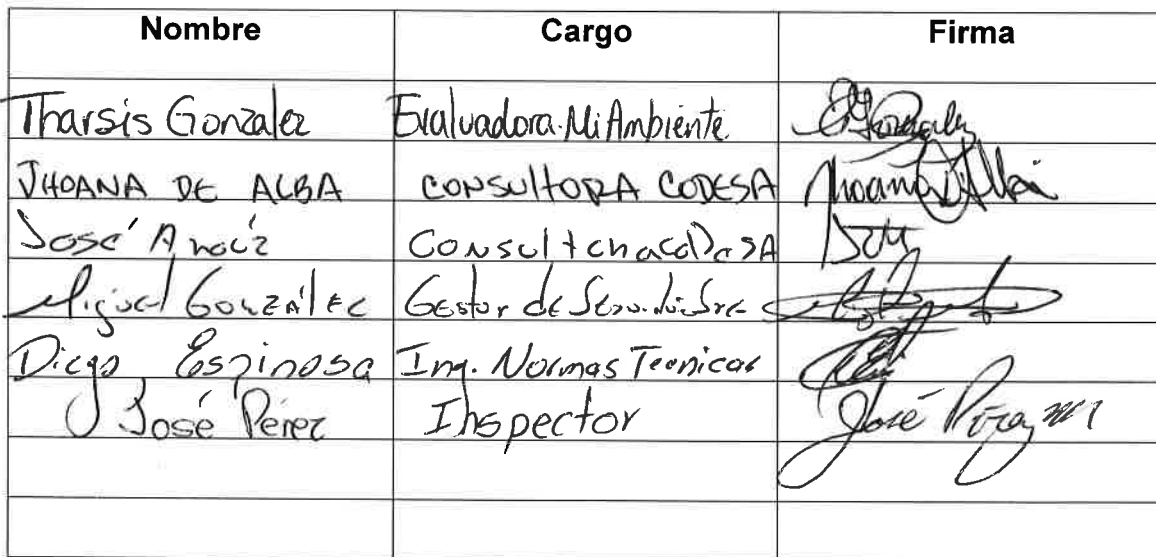 Nombre Cargo Firma
Tharsis Gonzalez Evaluadora MiAmbiente
JHOANA DE ALBA CONSULTORA CODESA Jhoana D Alba
José
Miguel González Gestor de
Diego Espinosa Ing. Normas Tecnicas
José Pérez Inspector José Pérez